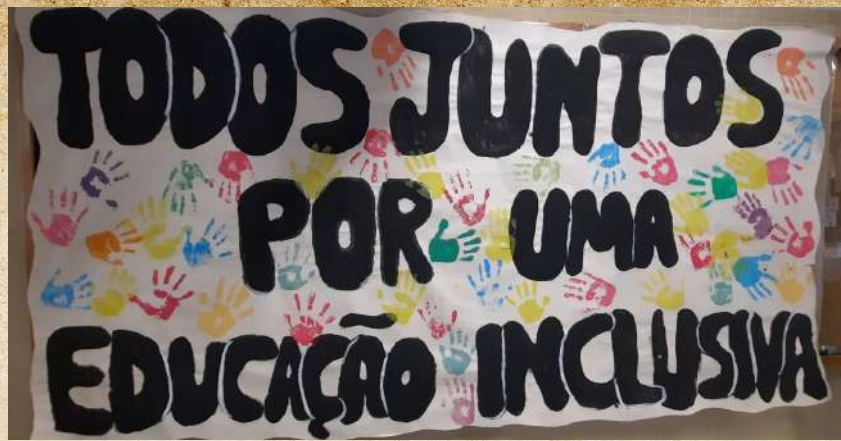 TODOS JUNTOS
POR UMA
EDUCAÇÃO INCLUSIVA